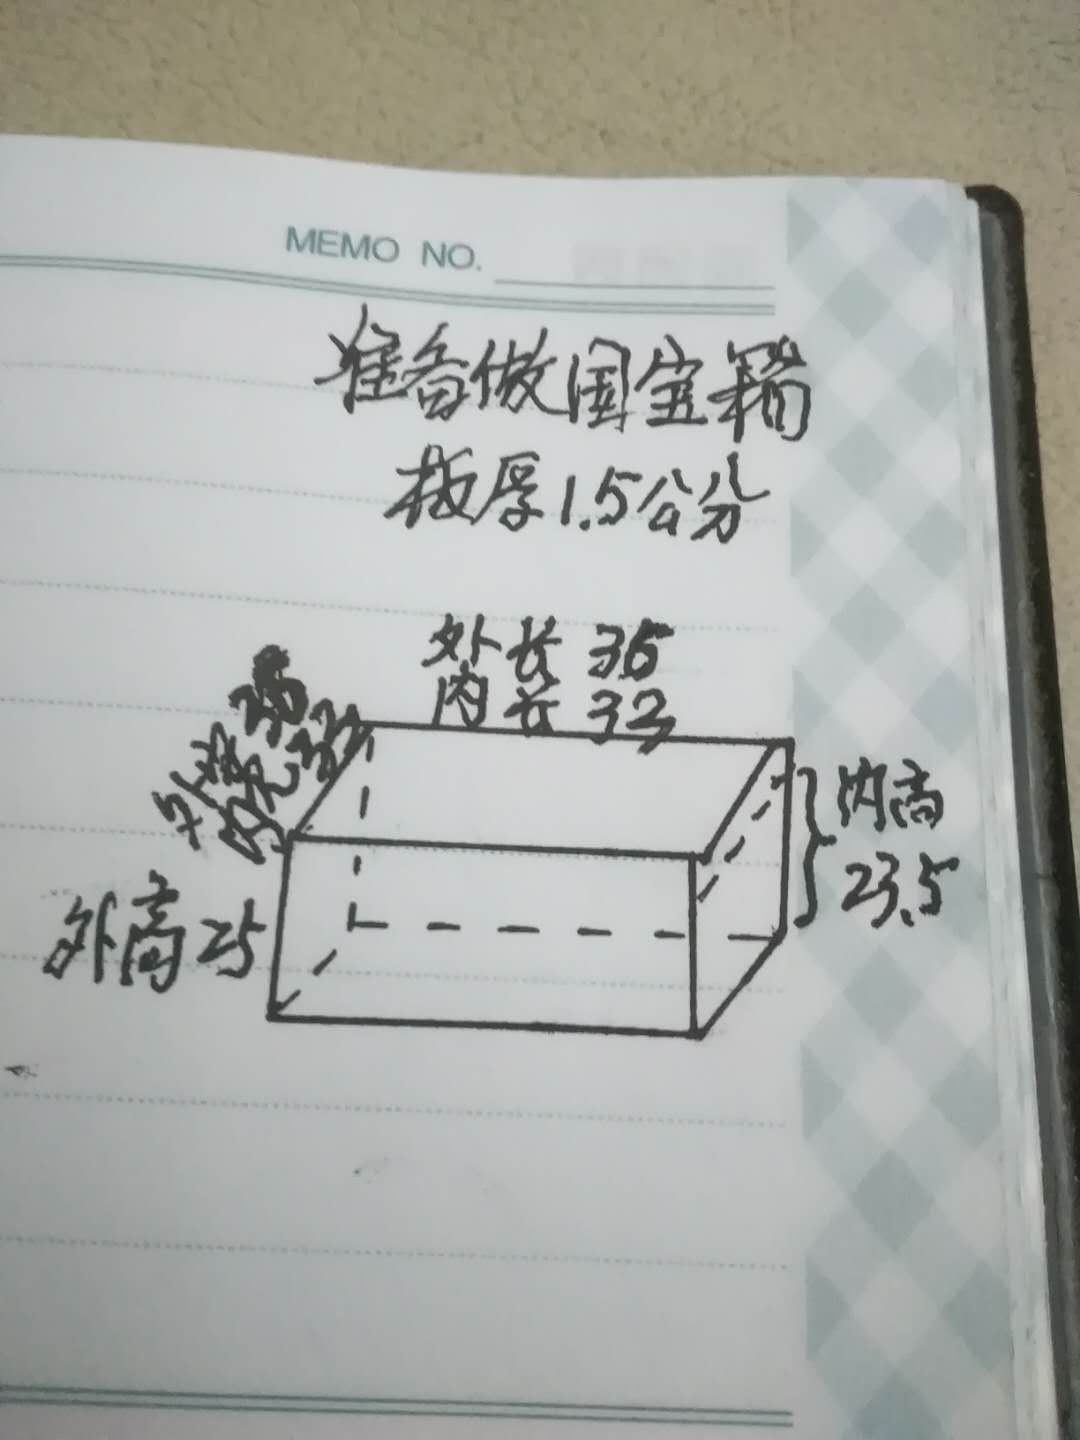 MEMO NO.
准备做国宝箱
板厚1.5公分
外长 35
内长 32
内高
23.5
外高 25